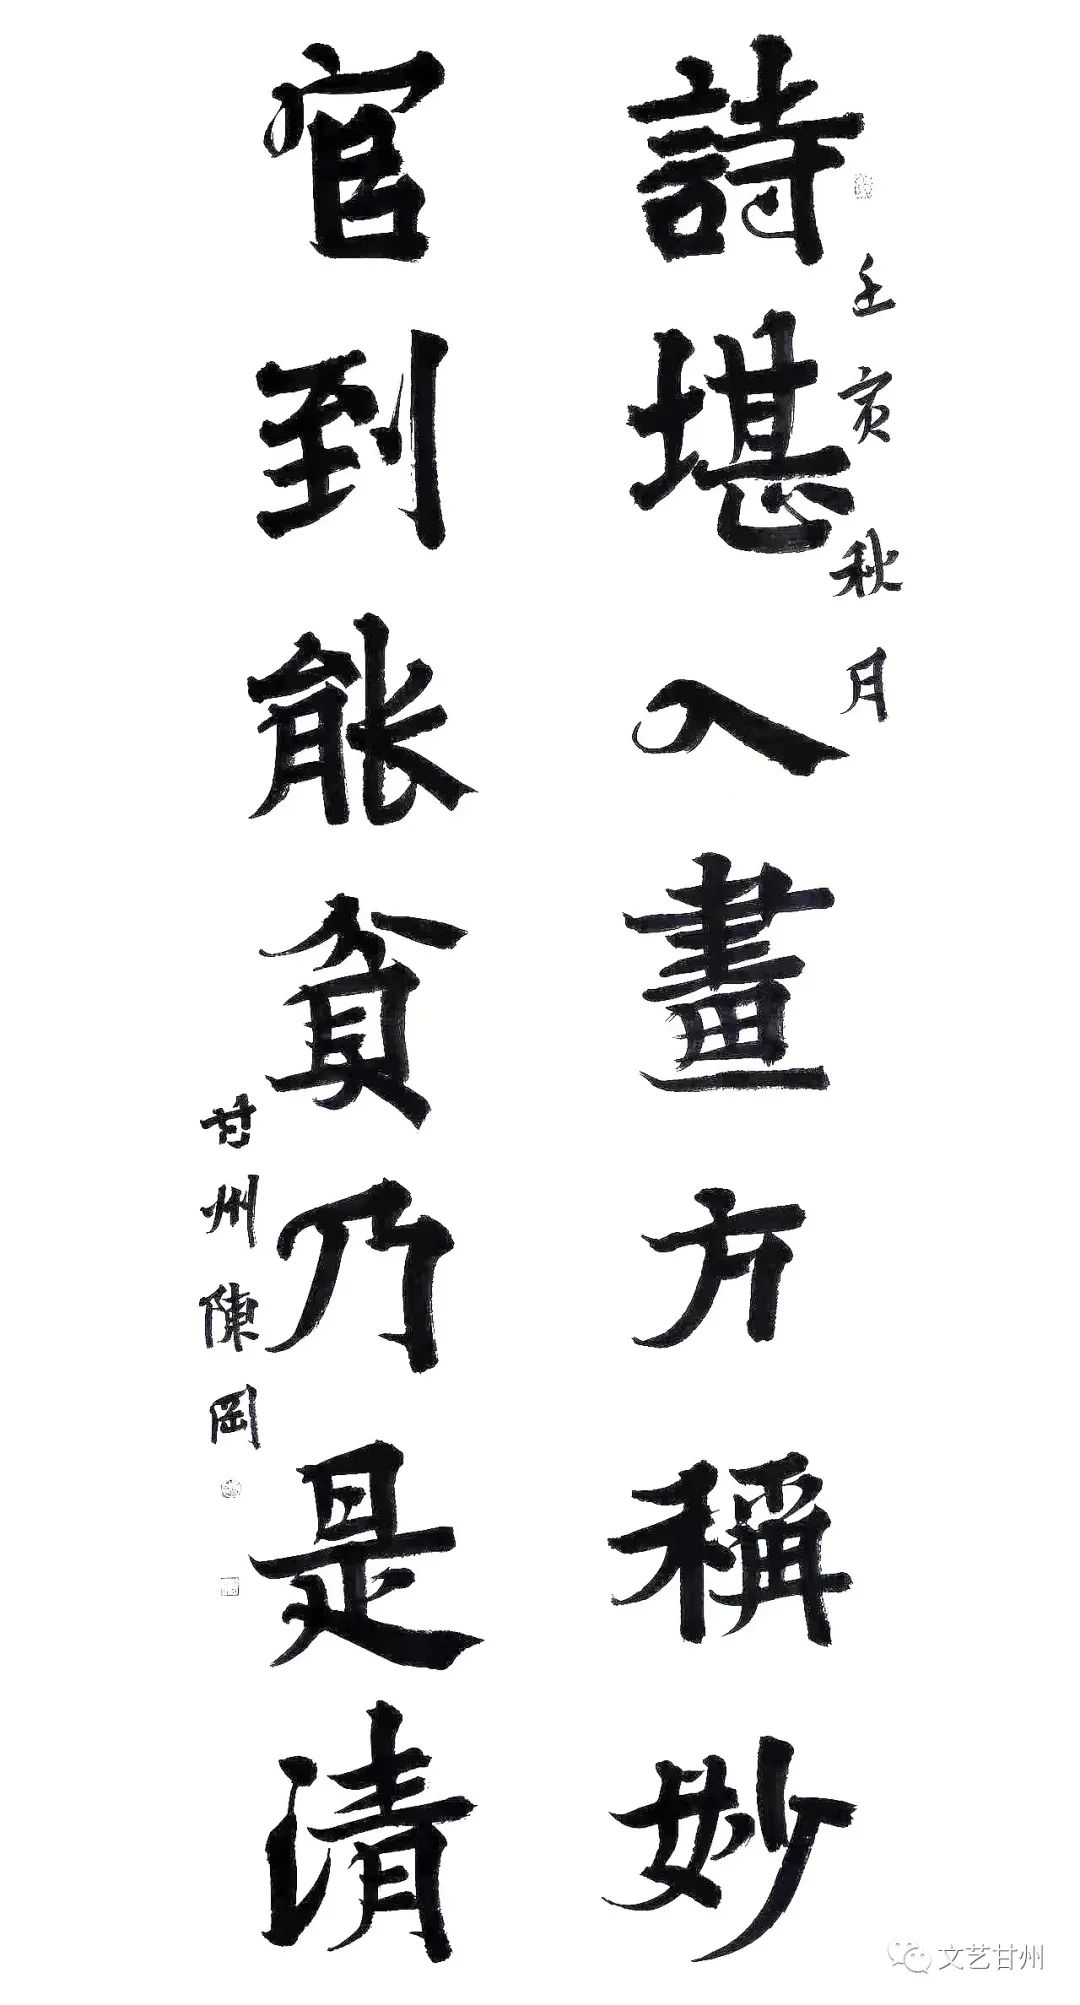 壬寅秋月
詩堪入畫方稱妙
官到能貧乃是清
甘州陳岡
文艺甘州